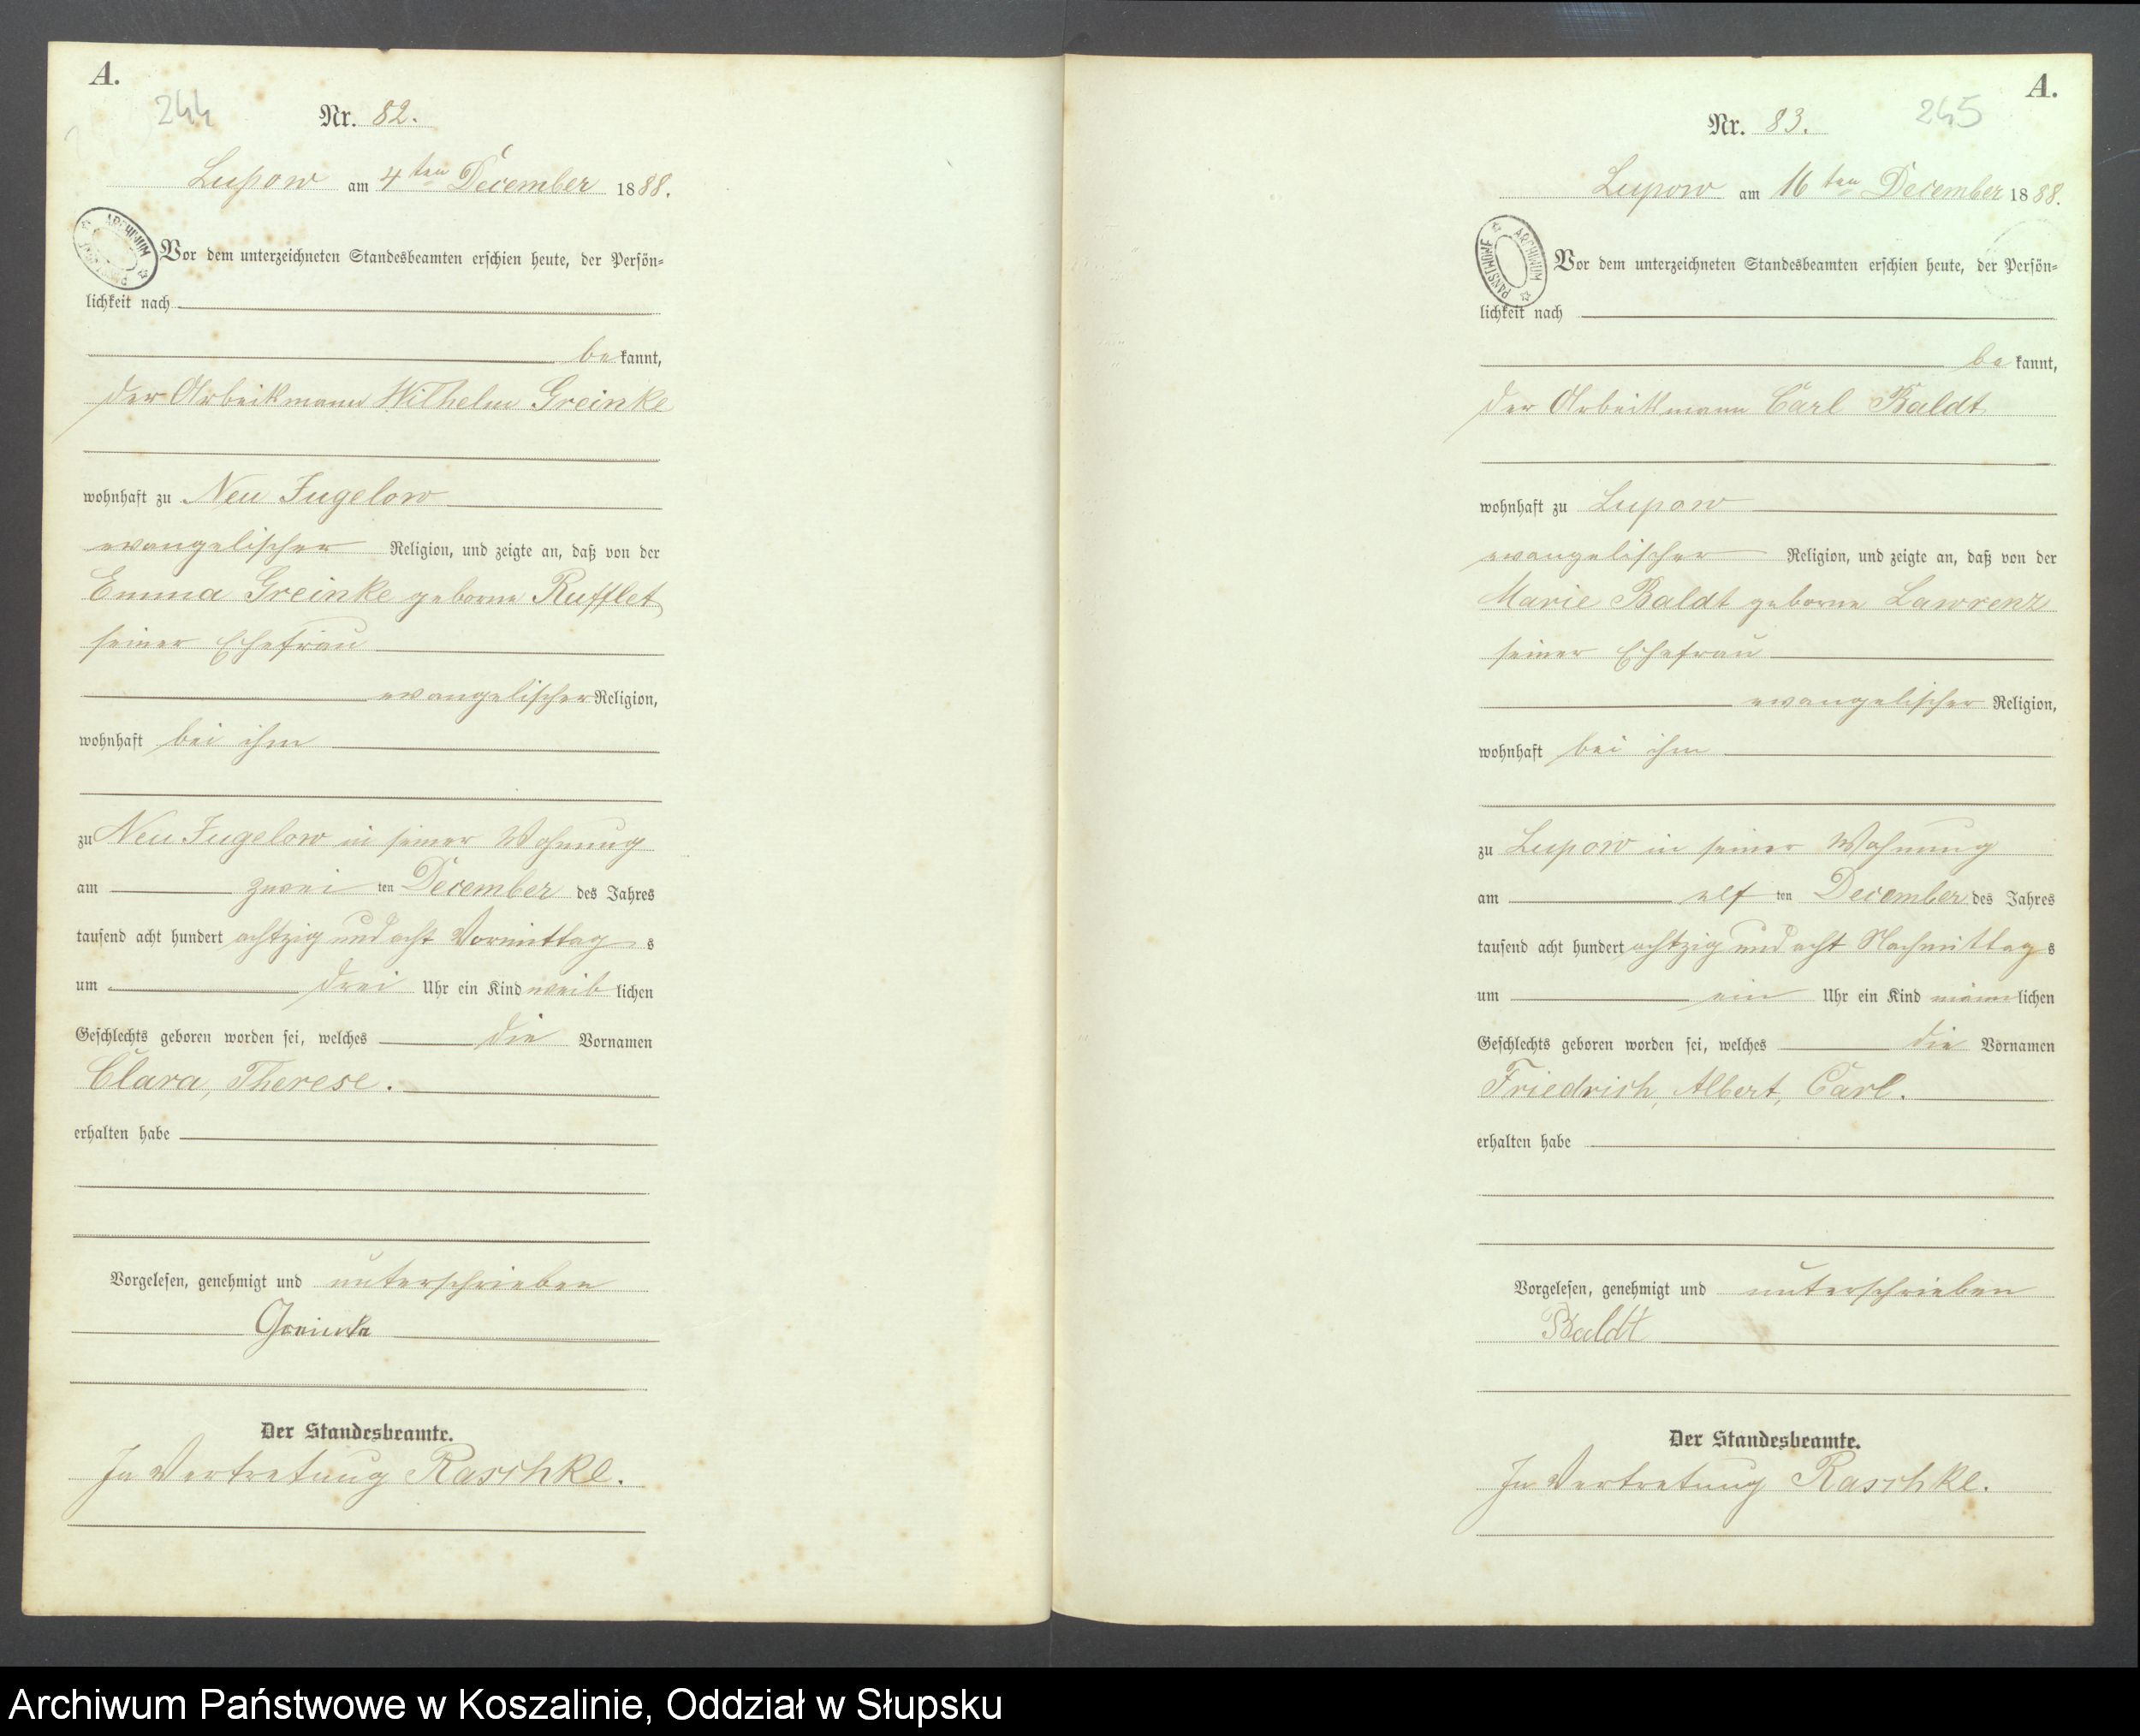 A.
244
Nr. 82.
Lupow am 4ten December 1888.
Vor dem unterzeichneten Standesbeamten erschien heute, der Persön-
lichkeit nach
bekannt,
der Arbeitsmann Wilhelm Greinke
wohnhaft zu Neu Jugelow
evangelischer Religion, und zeigte an, daß von der
Emma Greinke geborne Rufflet
seiner Ehefrau
evangelischer Religion,
wohnhaft bei ihm
zu Neu Jugelow in seiner Wohnung
am zwei ten December des Jahres
tausend acht hundert achtzig und acht Vormittags
um drei Uhr ein Kind weiblichen
Geschlechts geboren worden sei, welches die Vornamen
Clara, Therese.
erhalten habe
Vorgelesen, genehmigt und unterschrieben
Greinke
Der Standesbeamte.
In Vertretung Raschke.
A.
245
Nr. 83.
Lupow am 16ten December 1888.
ARCHIWUM PAŃSTWOWE
Vor dem unterzeichneten Standesbeamten erschien heute, der Persön-
lichkeit nach
bekannt,
der Arbeitsmann Carl Baldt
wohnhaft zu Lupow
evangelischer Religion, und zeigte an, daß von der
Marie Baldt geborne Lawrenz
seiner Ehefrau
evangelischer Religion,
wohnhaft bei ihm
zu Lupow in seiner Wohnung
am elf ten December des Jahres
tausend acht hundert achtzig und acht Nachmittags
um ein Uhr ein Kind männlichen
Geschlechts geboren worden sei, welches die Vornamen
Friedrich, Albert, Carl.
erhalten habe
Vorgelesen, genehmigt und unterschrieben
Baldt
Der Standesbeamte.
In Vertretung Raschke.
Archiwum Państwowe w Koszalinie, Oddział w Słupsku